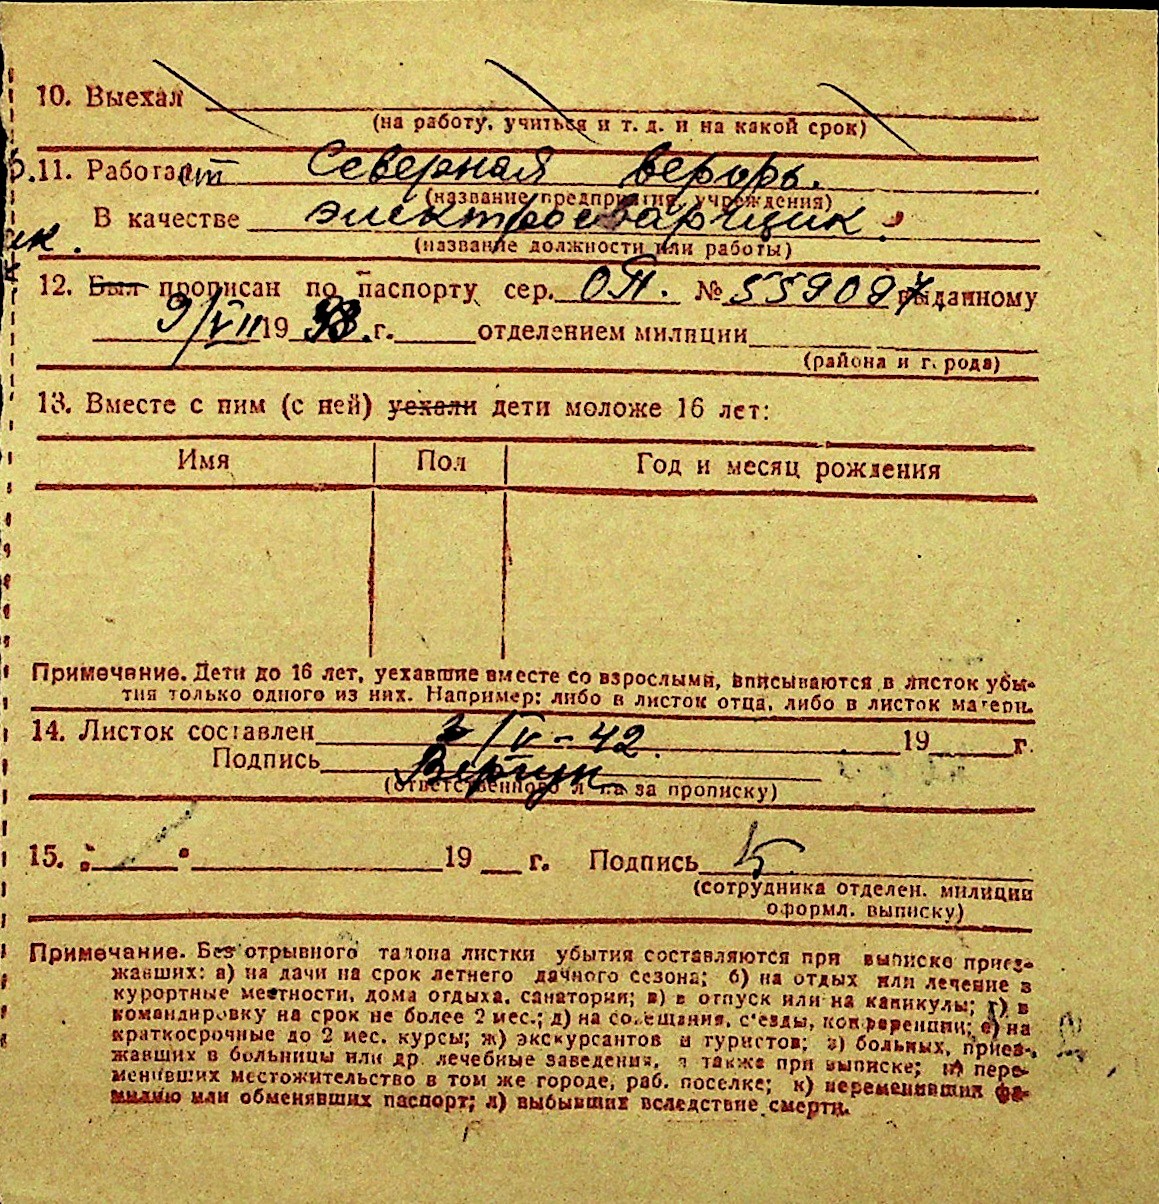 10. Выехал
(на работу, учиться и т. д. и на какой срок)
11. Работает Северная верфь.
(название предприятия, учреждения)
В качестве электросварщик.
(название должности или работы)
12. Был прописан по паспорту сер. ОЯ. № 559087 выданному
9/VII 1938. г. отделением милиции
(района и города)
13. Вместе с ним (с ней) уехали дети моложе 16 лет:
Имя Пол Год и месяц рождения
Примечание. Дети до 16 лет, уехавшие вместе со взрослыми, вписываются в листок убы-
тия только одного из них. Например: либо в листок отца, либо в листок матери.
14. Листок составлен 2/V-42. 19 г.
Подпись
(ответственного лица за прописку)
15. " " 19 г. Подпись
(сотрудника отделен. милиции
оформл. выписку)
Примечание. Без отрывного талона листки убытия составляются при выписке приез-
жавших: а) на дачи на срок летнего дачного сезона; б) на отдых или лечение в
курортные местности, дома отдыха, санатории; в) в отпуск или на каникулы; г) в
командировку на срок не более 2 мес.; д) на совещания, с'езды, конференции; е) на
краткосрочные до 2 мес. курсы; ж) экскурсантов и туристов; з) больных, приез-
жавших в больницы или др. лечебные заведения, а также при выписке; и) пере-
менивших местожительство в том же городе, раб. поселке; к) переменивших фа-
милию или обменявших паспорт; л) выбывших вследствие смерти.